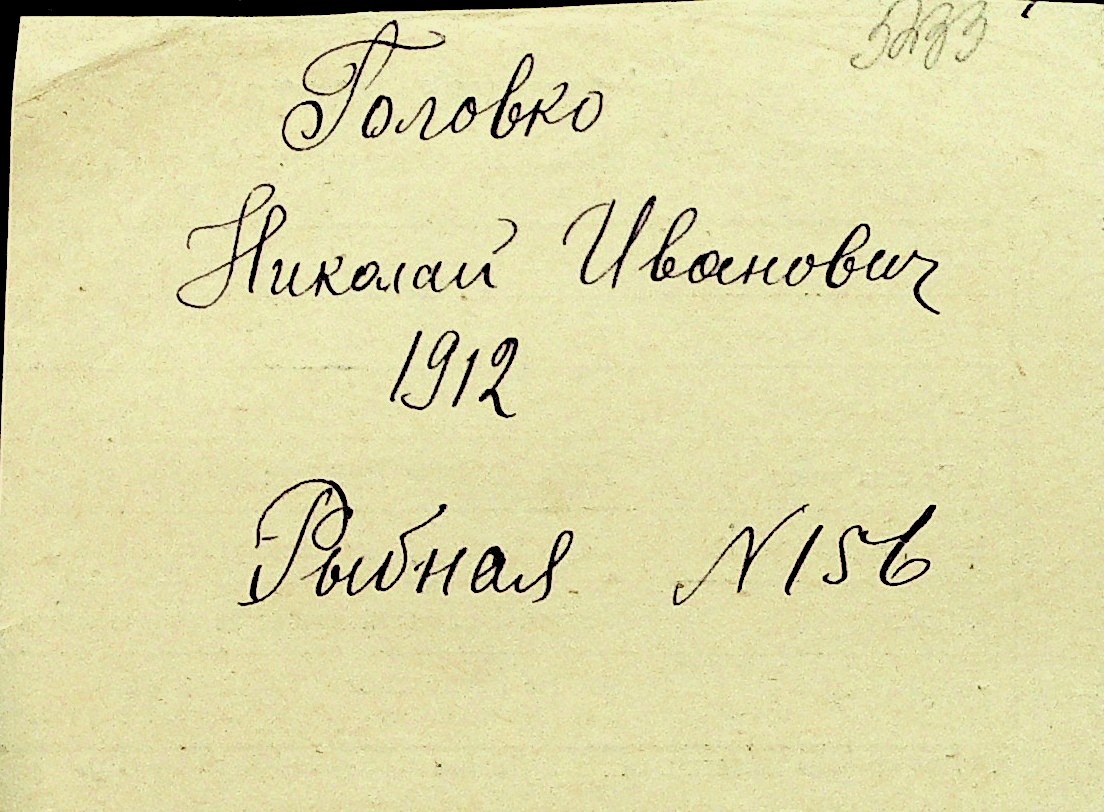 5233
Головко
Николай Иванович
1912
Рыбная N156